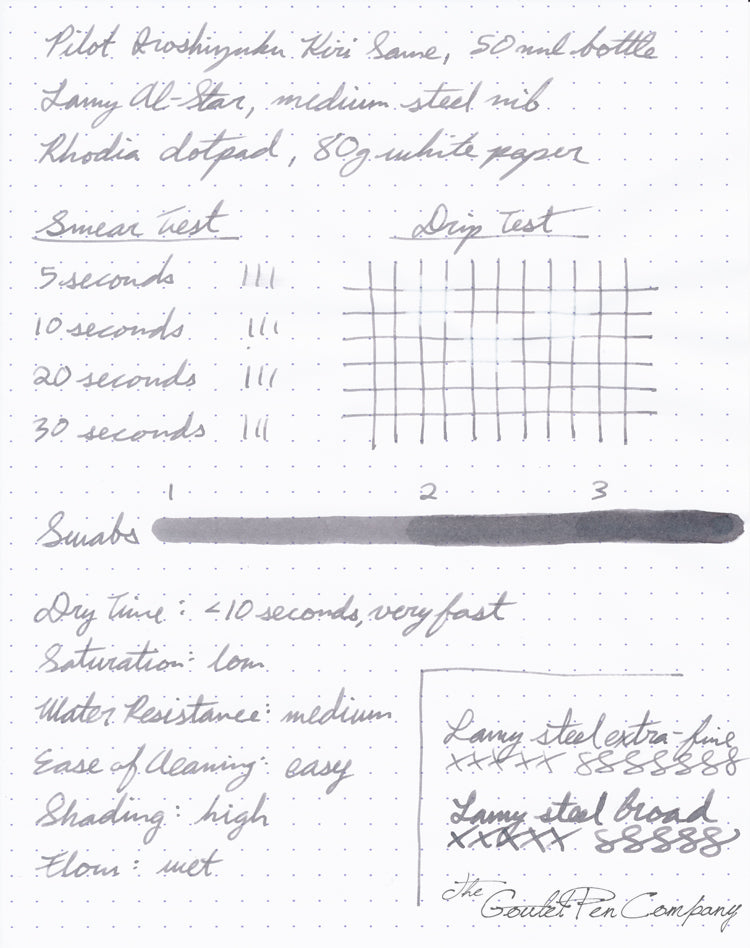 Pilot Iroshizuku Kiri Same, 50ml bottle
Lamy Al-Star, medium steel nib
Rhodia dotpad, 80g white paper
Smear Test
Drip Test
5 seconds III
10 seconds III
20 seconds III
30 seconds III
1 2 3
Swabs
Dry Time: <10 seconds, very fast
Saturation: low
Water Resistance: medium
Ease of Cleaning: easy
Shading: high
Flow: wet
Lamy steel extra-fine
xxxxx 8888888
Lamy steel broad
xxxxx 88888
The Goulet Pen Company